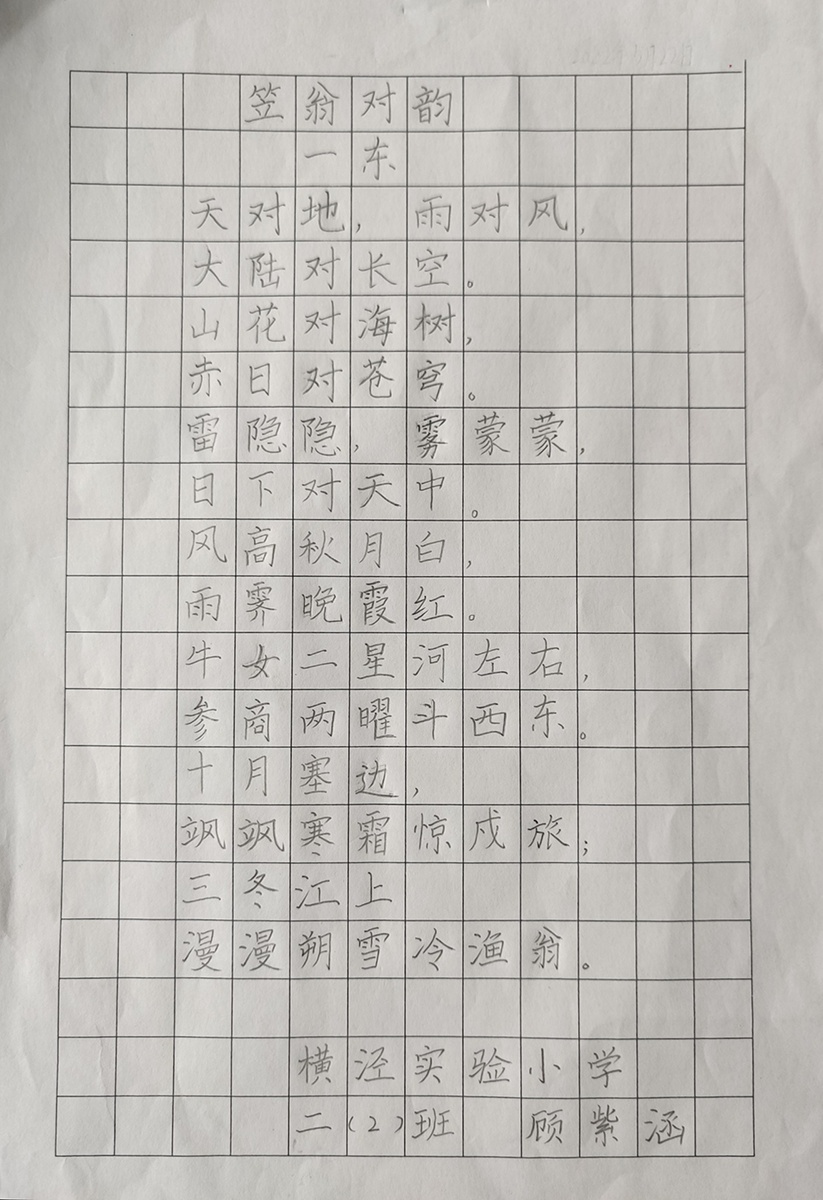 笠翁对韵
一东
天对地，雨对风，
大陆对长空。
山花对海树，
赤日对苍穹。
雷隐隐，雾蒙蒙，
日下对天中。
风高秋月白，
雨霁晚霞红。
牛女二星河左右，
参商两曜斗西东。
十月塞边，
飒飒寒霜惊戍旅；
三冬江上
漫漫朔雪冷渔翁。
横泾实验小学
二（2）班 顾紫涵